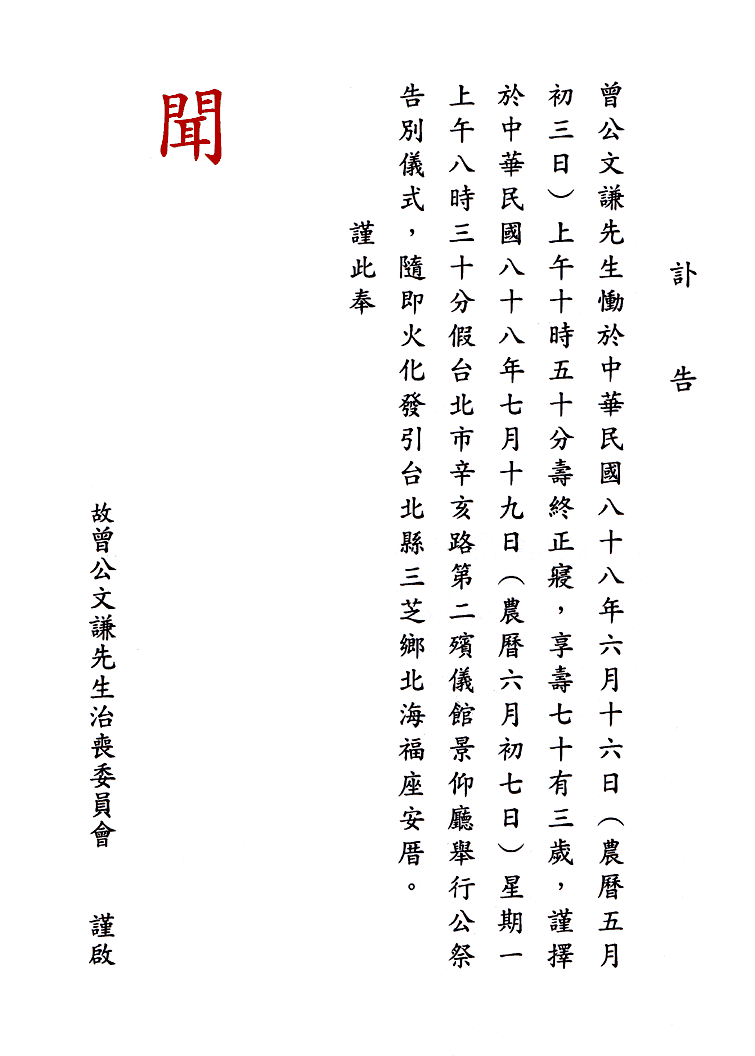 訃告
曾公文謙先生慟於中華民國八十八年六月十六日（農曆五月
初三日）上午十時五十分壽終正寢，享壽七十有三歲，謹擇
於中華民國八十八年七月十九日（農曆六月初七日）星期一
上午八時三十分假台北市辛亥路第二殯儀館景仰廳舉行公祭
告別儀式，隨即火化發引台北縣三芝鄉北海福座安厝。
謹此奉
聞
故曾公文謙先生治喪委員會 謹啟